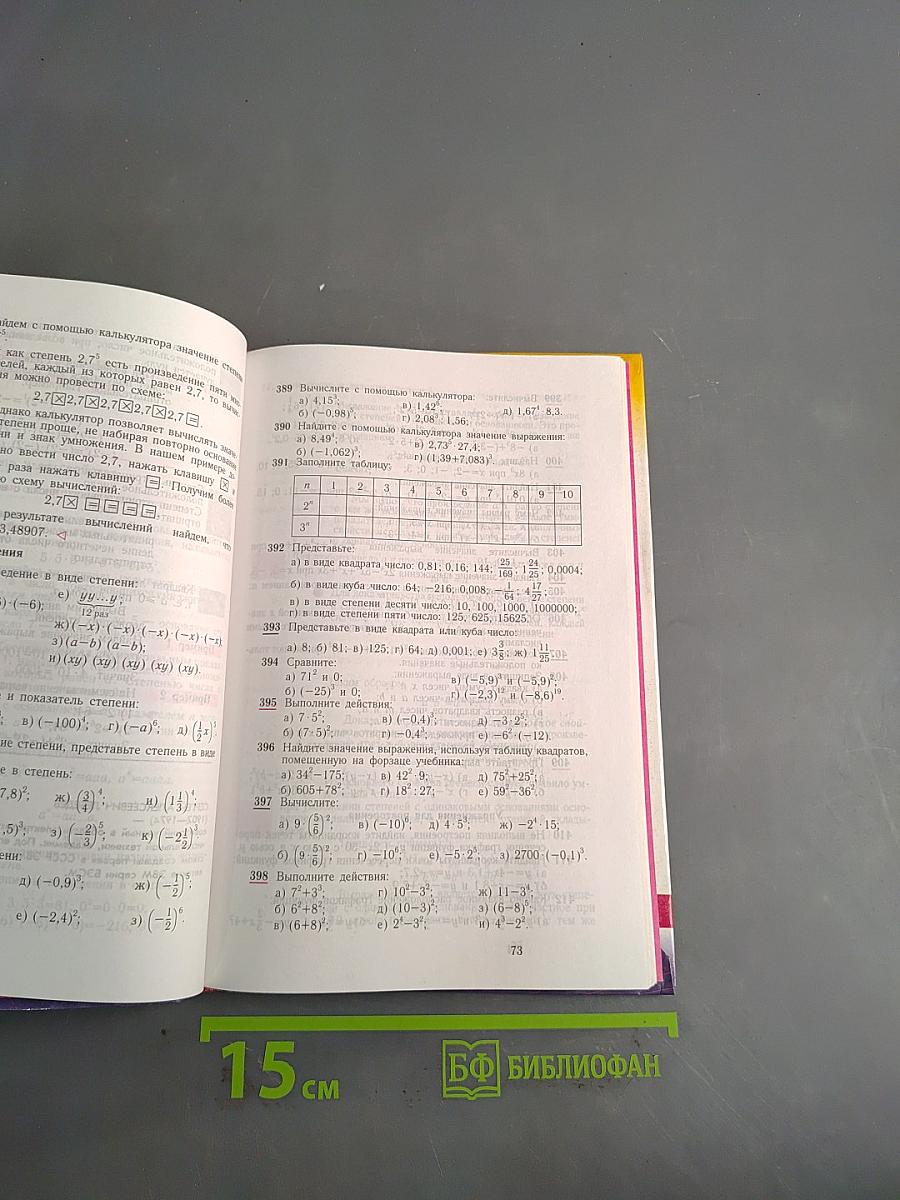 айдем с помощью калькулятора значение степени
как степень 2,7⁵ есть произведение пяти
телей, каждый из которых равен 2,7, то
ия можно провести по схеме:
2,7 ☒ 2,7 ☒ 2,7 ☒ 2,7 ☒ 2,7 ⊟.
днако калькулятор позволяет вычислять
степени проще, не набирая повторно основание
и знак умножения. В нашем примере
но ввести число 2,7, нажать клавишу ☒ и
раза нажать клавишу ⊟. Получим более
ю схему вычислений:
2,7 ☒ ⊟ ⊟ ⊟ ⊟.
результате вычислений найдем, что
3,48907. ◁
ения
едение в виде степени:
)·(−6); е) yy...y;
12 раз
ж) (−x)·(−x)·(−x)·(−x)·(−x);
з) (a−b) (a−b);
и) (xy) (xy) (xy) (xy) (xy).
е и показатель степени:
в) (−100)⁴; г) (−a)⁶; д) (1/2 x)⁵.
ие степени, представьте степень в виде
е в степень:
7,8)²; ж) (3/4)⁴; и) (1 1/3)⁴;
,5)³; з) (−2/3)⁵; к) (−2 1/2)³.
ени:
д) (−0,9)³; ж) (−1/2)⁵;
е) (−2,4)²; з) (−1/2)⁶.
389 Вычислите с помощью калькулятора:
а) 4,15³; в) 1,42⁶; д) 1,67⁴·8,3.
б) (−0,98)³; г) 2,08³:1,56;
390 Найдите с помощью калькулятора значение выражения:
а) 8,49⁴; в) 2,73⁵·27,4;
б) (−1,062)³; г) (1,39+7,083)³.
391 Заполните таблицу:
n 1 2 3 4 5 6 7 8 9 10
2ⁿ
3ⁿ
392 Представьте:
а) в виде квадрата число: 0,81; 0,16; 144; 25/169; 1 24/25; 0,0004;
б) в виде куба число: 64; −216; 0,008; −1/64; 4 17/27;
в) в виде степени десяти число: 10, 100, 1000, 1000000;
г) в виде степени пяти число: 125, 625, 15625.
393 Представьте в виде квадрата или куба число:
а) 8; б) 81; в) 125; г) 64; д) 0,001; е) 3 3/8; ж) 1 11/25.
394 Сравните:
а) 71² и 0; в) (−5,9)³ и (−5,9)²;
б) (−25)³ и 0; г) (−2,3)¹² и (−8,6)¹⁹.
395 Выполните действия:
а) 7·5²; в) (−0,4)³; д) −3·2⁵;
б) (7·5)²; г) −0,4³; е) −6²·(−12).
396 Найдите значение выражения, используя таблицу квадратов,
помещенную на форзаце учебника:
а) 34²−175; в) 42²·9; д) 75²+25²;
б) 605+78²; г) 18²:27; е) 59²−36².
397 Вычислите:
а) 9·(5/6)²; в) (−10)⁶; д) 4·5³; ж) −2⁴·15;
б) (9·5/6)²; г) −10⁶; е) −5·2⁵; з) 2700·(−0,1)³.
398 Выполните действия:
а) 7²+3³; г) 10²−3²; ж) 11−3⁴;
б) 6²+8²; д) (10−3)²; з) (6−8)⁵;
в) (6+8)²; е) 2⁴−3²; и) 4³−2².
73
15 см
БФ БИБЛИОФАН